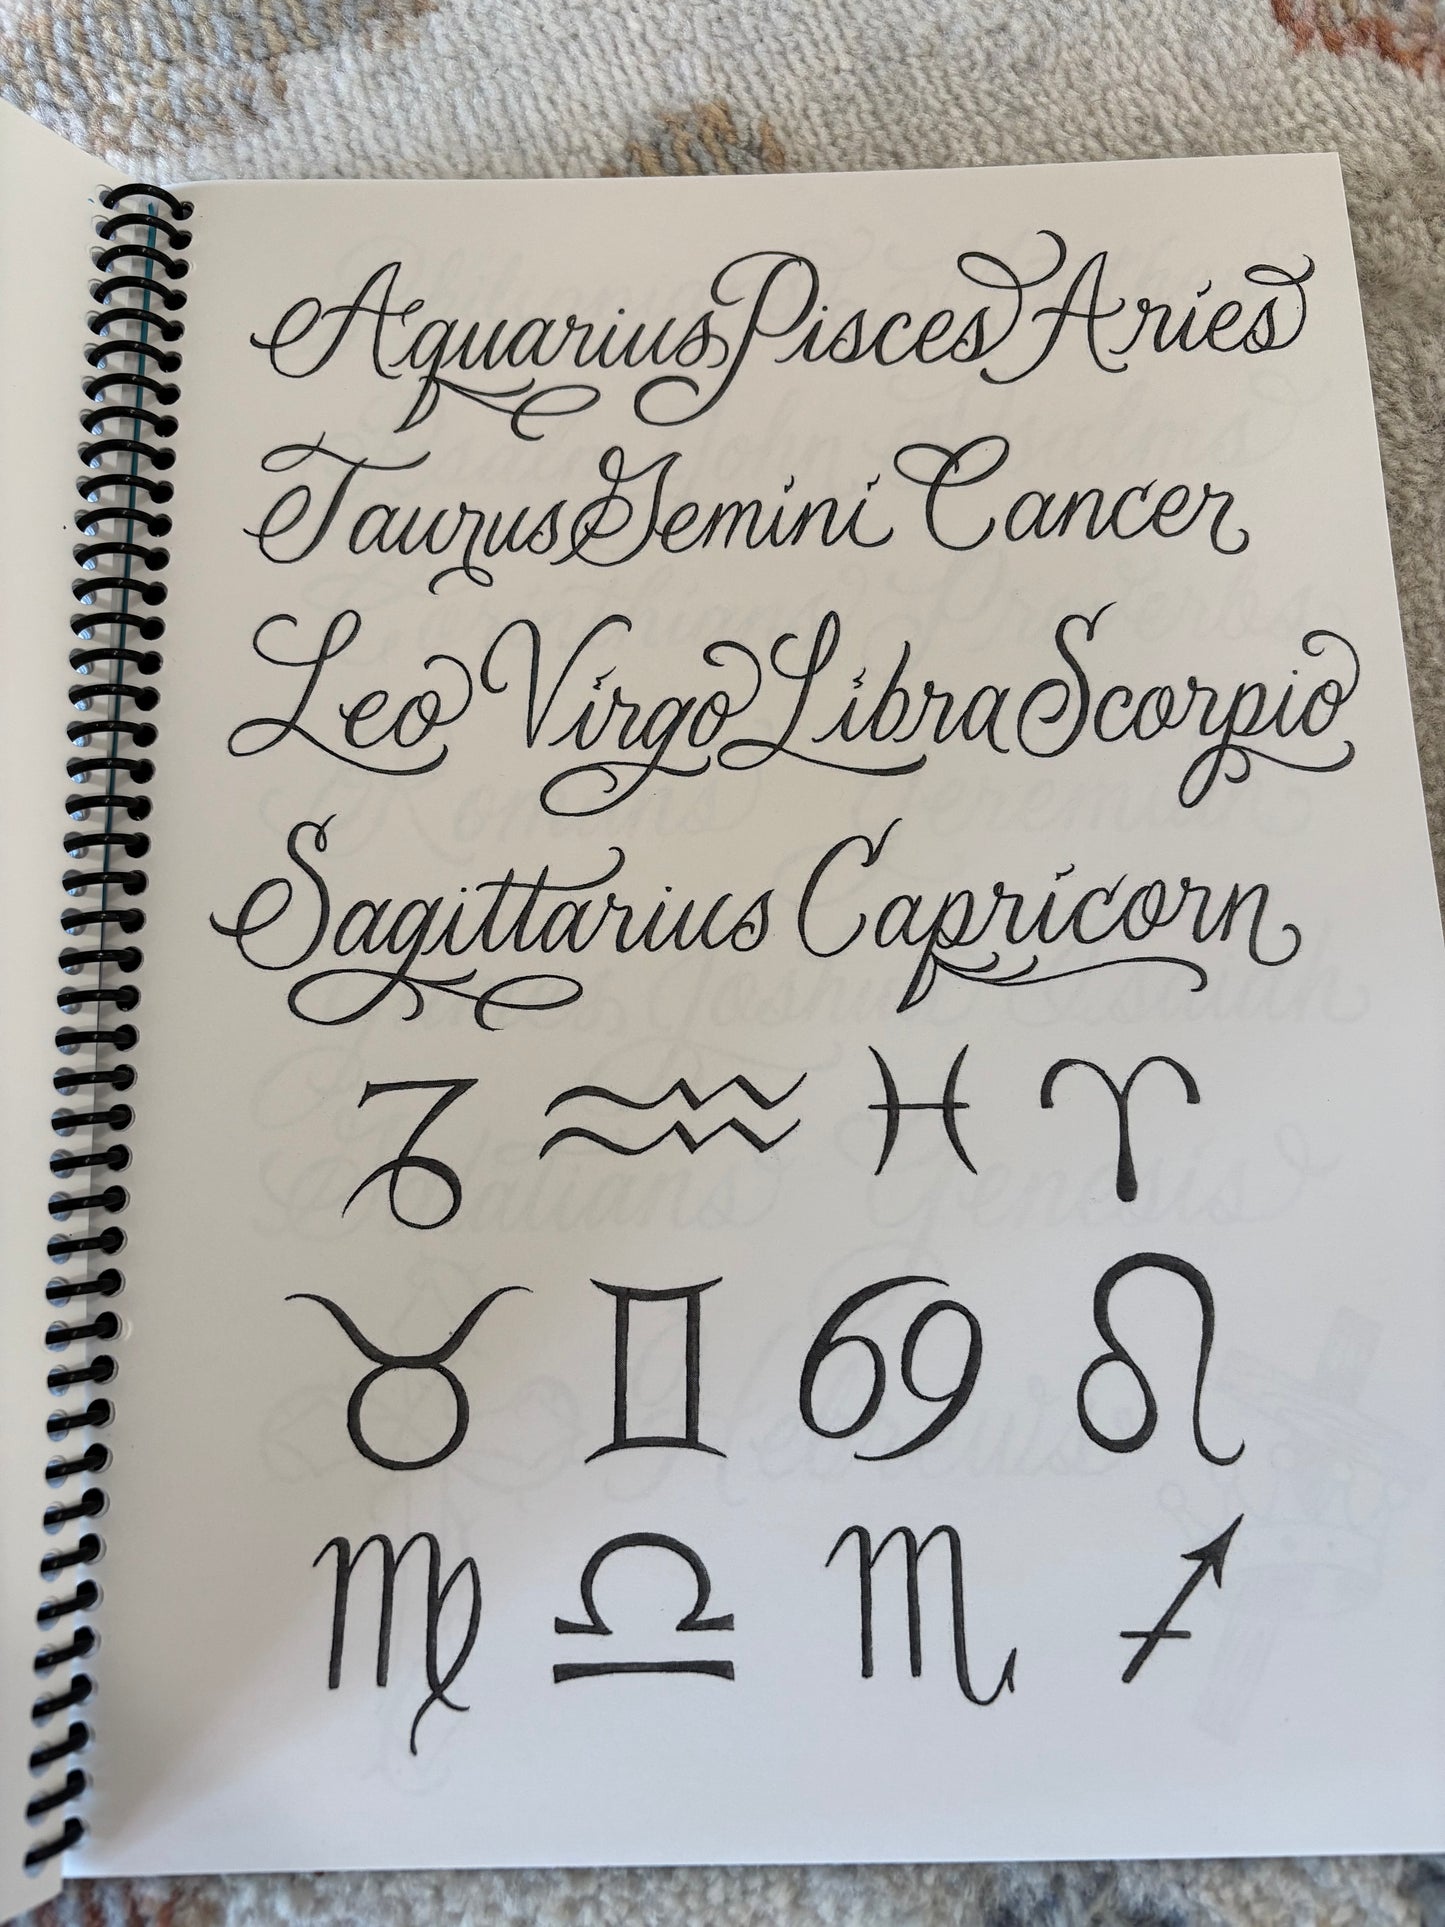 Aquarius Pisces Aries
Taurus Gemini Cancer
Leo Virgo Libra Scorpio
Sagittarius Capricorn
♑ ♒ ♓ ♈
♉ ♊ ♋ ♌
♍ ♎ ♏ ♐